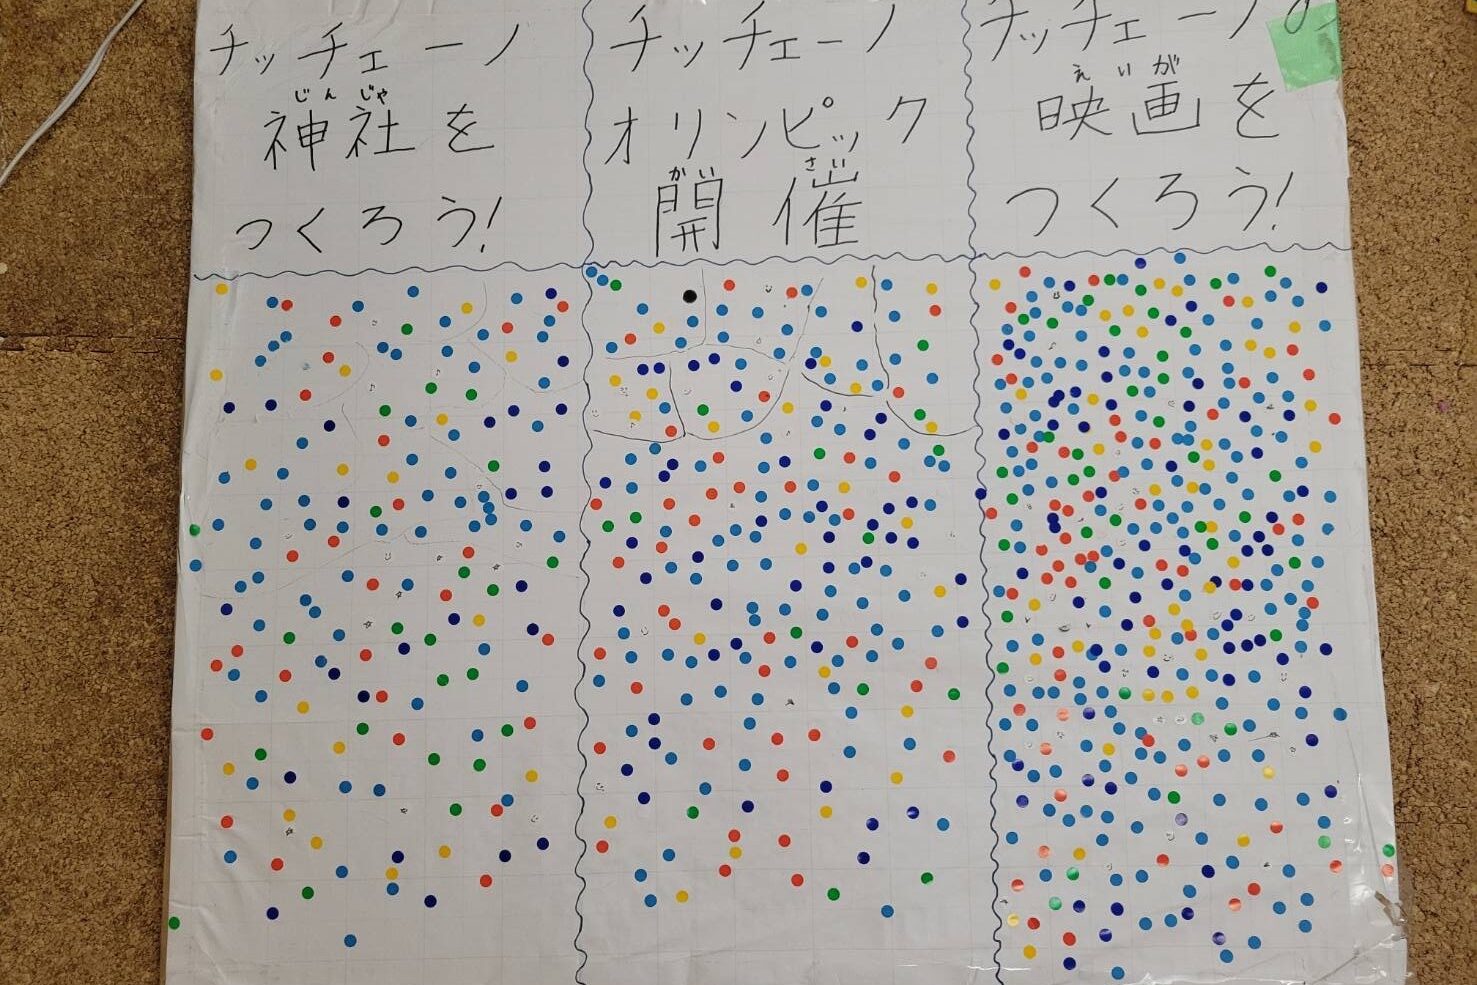 チッチェーノ
じんじゃ
神社を
つくろう!
チッチェーノ
オリンピック
かいさい
開催
チッチェーノの
えいが
映画を
つくろう!